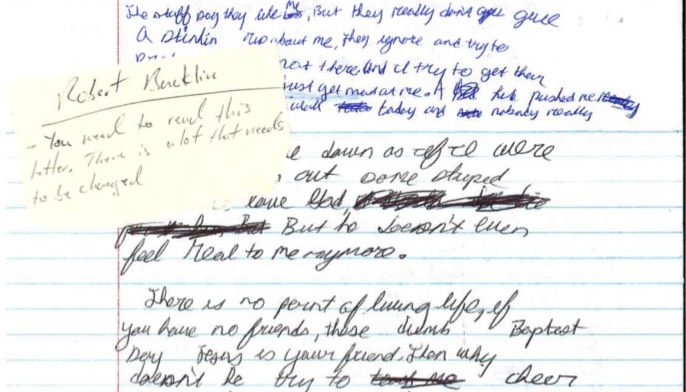 The staff say they like me, But they really don't give
A stinkin about me, They ignore and try to
not there and I try to get them
just get mad at me. I he pushed me
wall today and nobody really
Robert Bucklin
- You need to read this
letter. There is a lot that needs
to be changed
down as if I were
out some stuped
have God,
But he doesn't even
feel Real to me naymore.
There is no point of living life, if
you have no friends, these dumb Baptest
say Jesus is your friend. Then why
doesn't he try to cheer